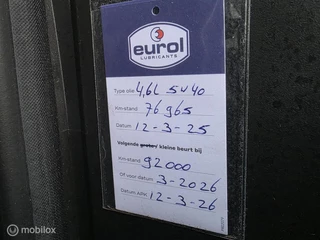 eurol
LUBRICANTS
Type olie 4,6L 5W40
Km-stand 76965
Datum 12-3-25
Volgende grote / kleine beurt bij
Km-stand 92000
Of voor datum 3-2026
Datum APK 12-3-26
© mobilox